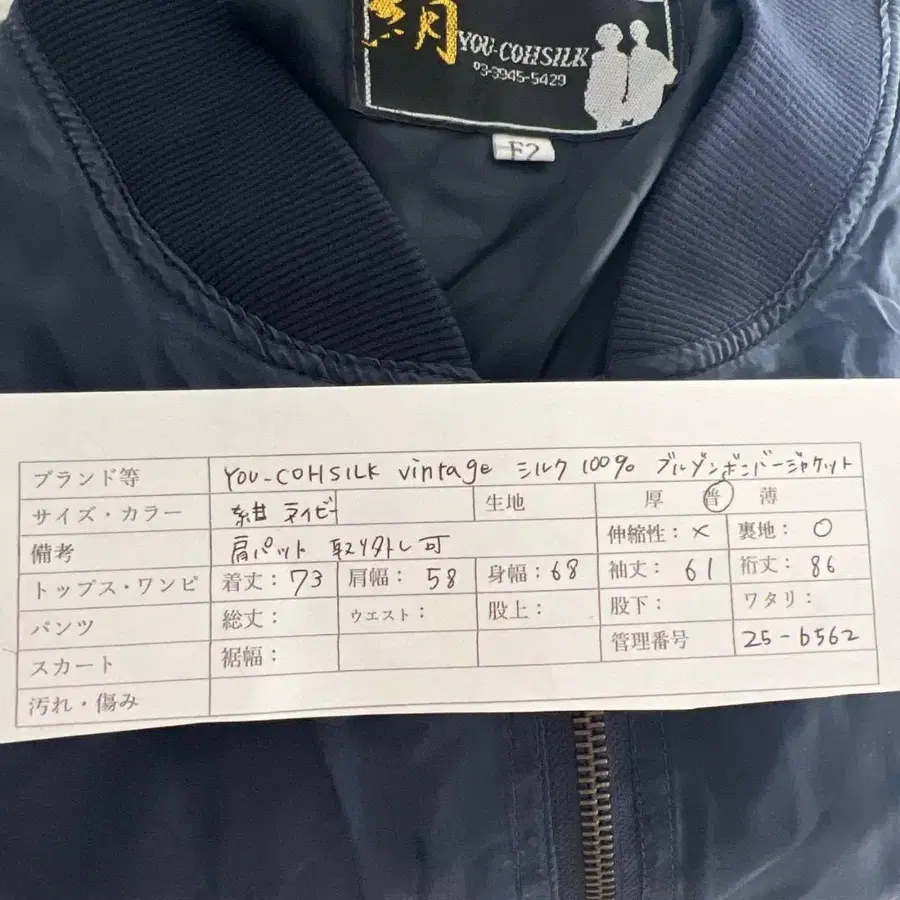 絹 YOU-COHSILK
03-3945-5429
F2
ブランド等 YOU-COHSILK vintage シルク 100% ブルゾンボンバージャケット
サイズ・カラー 紺 ネイビー 生地 厚 普 薄
備考 肩パット 取り外し可 伸縮性:× 裏地:○
トップス・ワンピ 着丈:73 肩幅:58 身幅:68 袖丈:61 裄丈:86
パンツ 総丈: ウエスト: 股上: 股下: ワタリ:
スカート 裾幅: 管理番号 25-6562
汚れ・傷み